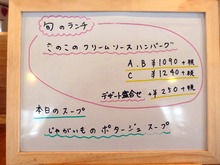 旬のランチ
きのこのクリームソースハンバーグ
A.B ¥1090+税
C ¥1240+税
デザート盛合せ +¥250+税
本日のスープ
じゃがいものポタージュスープ